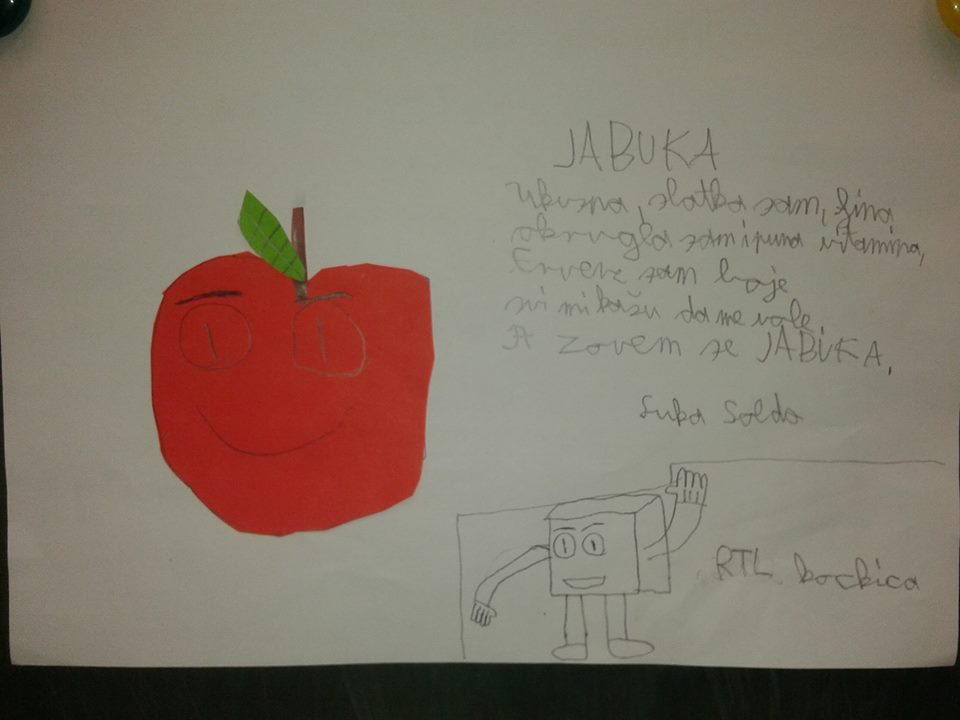 JABUKA
Ukusna, slatka sam, fina
okrugla sam i puna vitamina,
Crvene sam boje
svi mi kažu da me vole.
A zovem se JABUKA.
Luka Soldo
RTL kockica